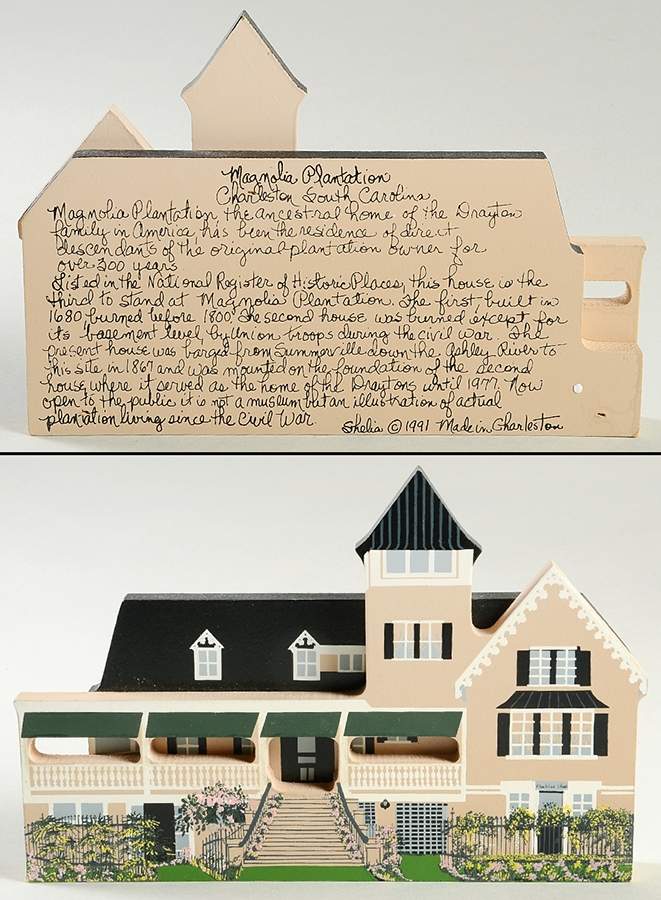 Magnolia Plantation
Charleston South Carolina
Magnolia Plantation, the ancestral home of the Drayton
family in America, has been the residence of direct
descendants of the original plantation owner for
over 300 years.
Listed in the National Register of Historic Places, this house is the
third to stand at Magnolia Plantation. The first, built in
1680 burned before 1800. The second house was burned, except for
its basement level, by Union troops during the civil war. The
present house was barged from Summerville down the Ashley River to
this site in 1867 and was mounted on the foundation of the second
house, where it served as the home of the Draytons until 1977. Now
open to the public it is not a museum but an illustration of actual
plantation living since the Civil War.
Shelia © 1991 Made in Charleston